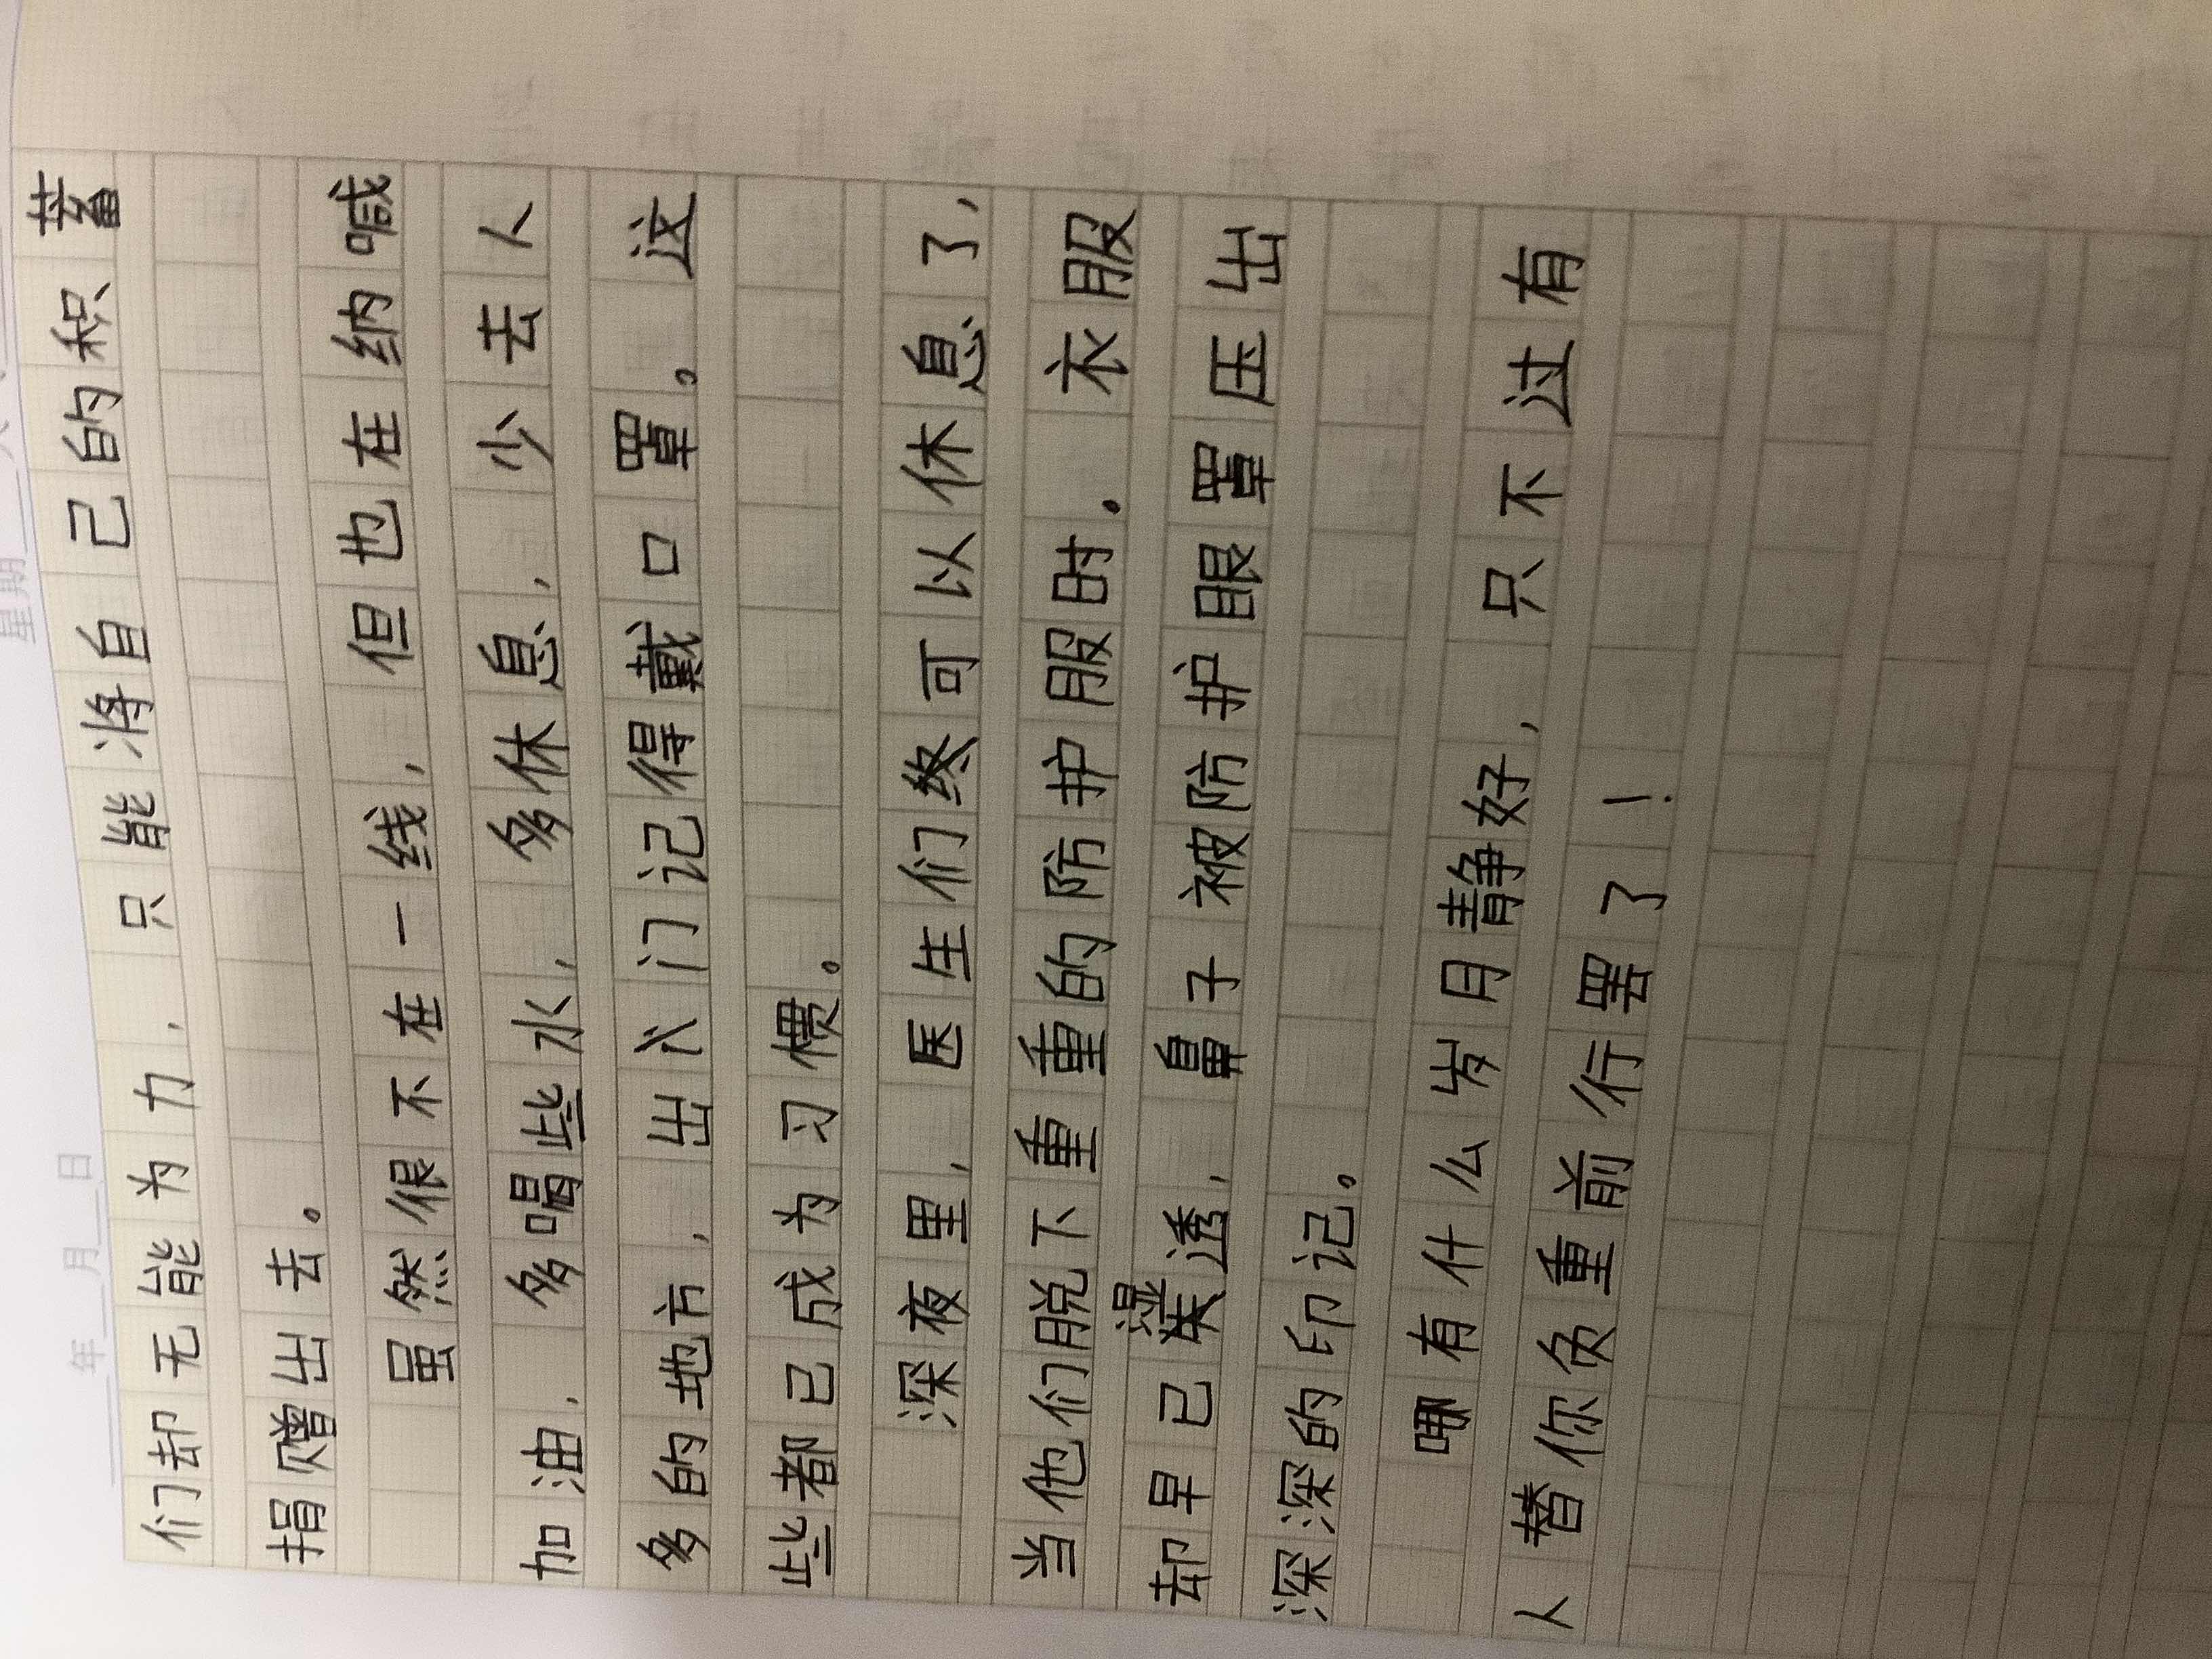 年 月 日 星期
们却无能为力,只能将自己的积蓄
捐赠出去。
虽然很不在一线,但也在纳喊
加油,多喝些水,多休息,少去人
多的地方,出门记得戴口罩。这
些都已成为习惯。
深夜里,医生们终可以休息了,
当他们脱下重重的防护服时。衣服
却早已湿透,鼻子被防护眼罩压出
深深的印记。
哪有什么岁月静好,只不过有
人替你负重前行罢了!